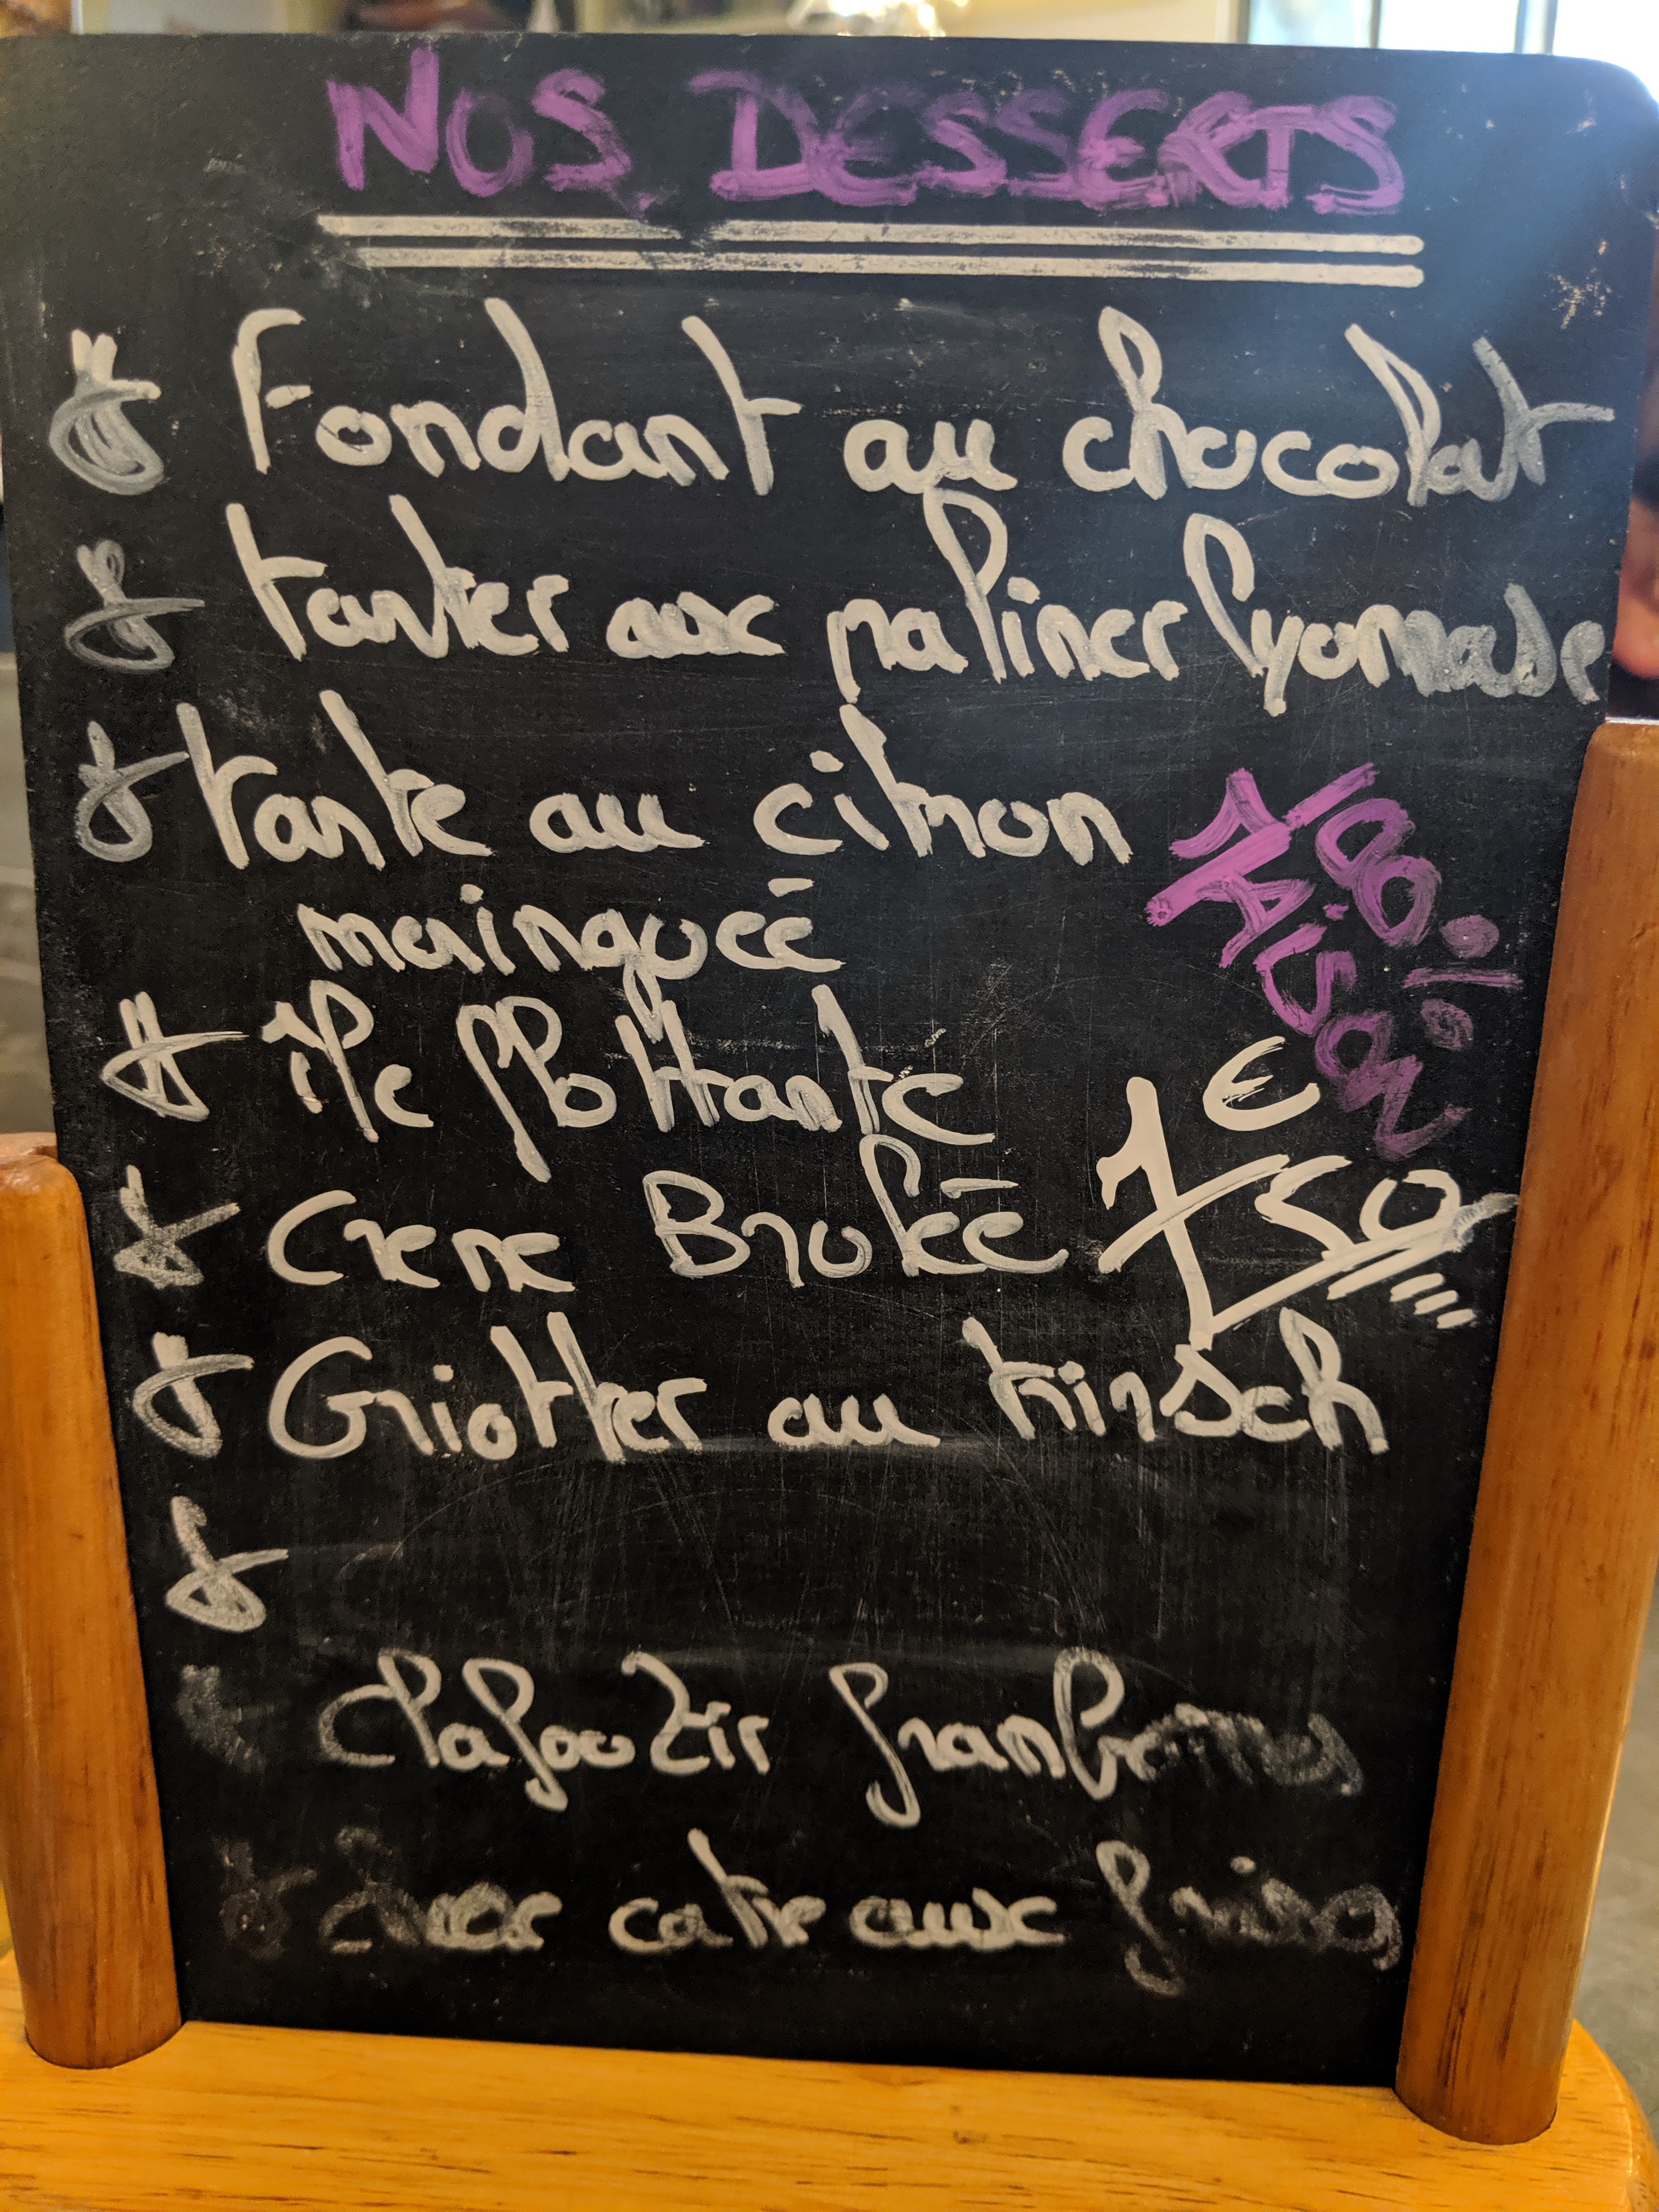 NOS DESSERTS
Fondant au chocolat
tartes aux pralines lyonnaise
tarte au citron
mainguéé
île flottante
Creme Brulée
Griottes au kirsch
100%
MAISON
7€50
Clafoutis framboises
avec cateaux